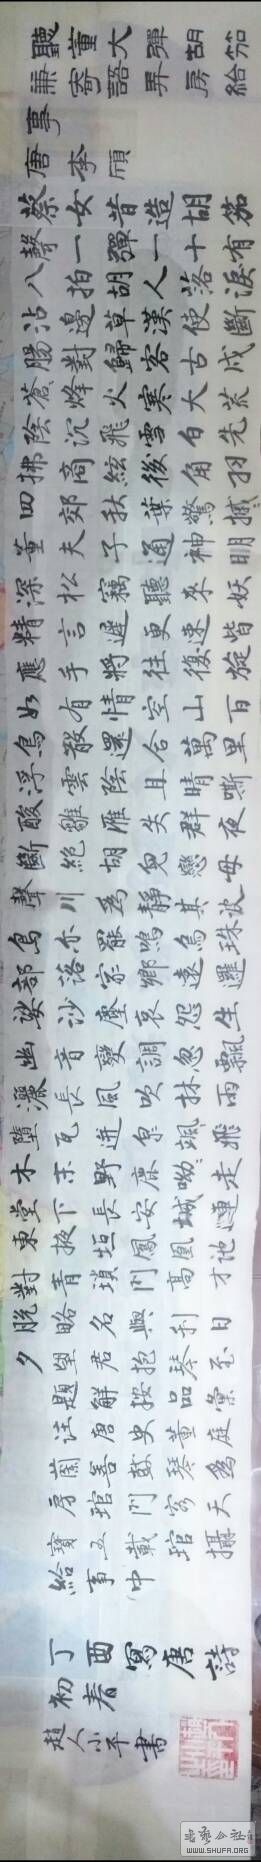 聽董大彈胡笳
兼寄語弄房給
事
唐李頎
蔡女昔造胡笳
聲一彈一十有
八拍胡人落淚
沾邊草漢使斷
腸對歸客古戍
蒼烽火寒大荒
陰沉飛雪白先
拂商絃後角羽
四郊秋葉驚摵
董夫子通神明
深松竊聽來妖
精言遲更速皆
應手將往復旋
如有情空山百
鳥散還合萬里
浮雲陰且晴嘶
酸雛雁失群夜
斷絕胡兒戀母
聲川為靜其波
鳥尔罷鳴烏珠
部落家鄉遠邏
娑沙塵哀怨生
幽音變調忽飄
灑長風吹林雨
墮瓦迸泉颯飛
木末野鹿呦呦走
堂下長安城連
東掖垣鳳凰池
對青瑣門高才
脫略名與利日
夕望君抱琴至
題解按品彙
注唐史董庭
蘭善鼓琴為
房琯門客天
寶五載琯攝
給事中
丁酉寫唐詩
初春
趙人小平書
WWW.SHUFA.ORG